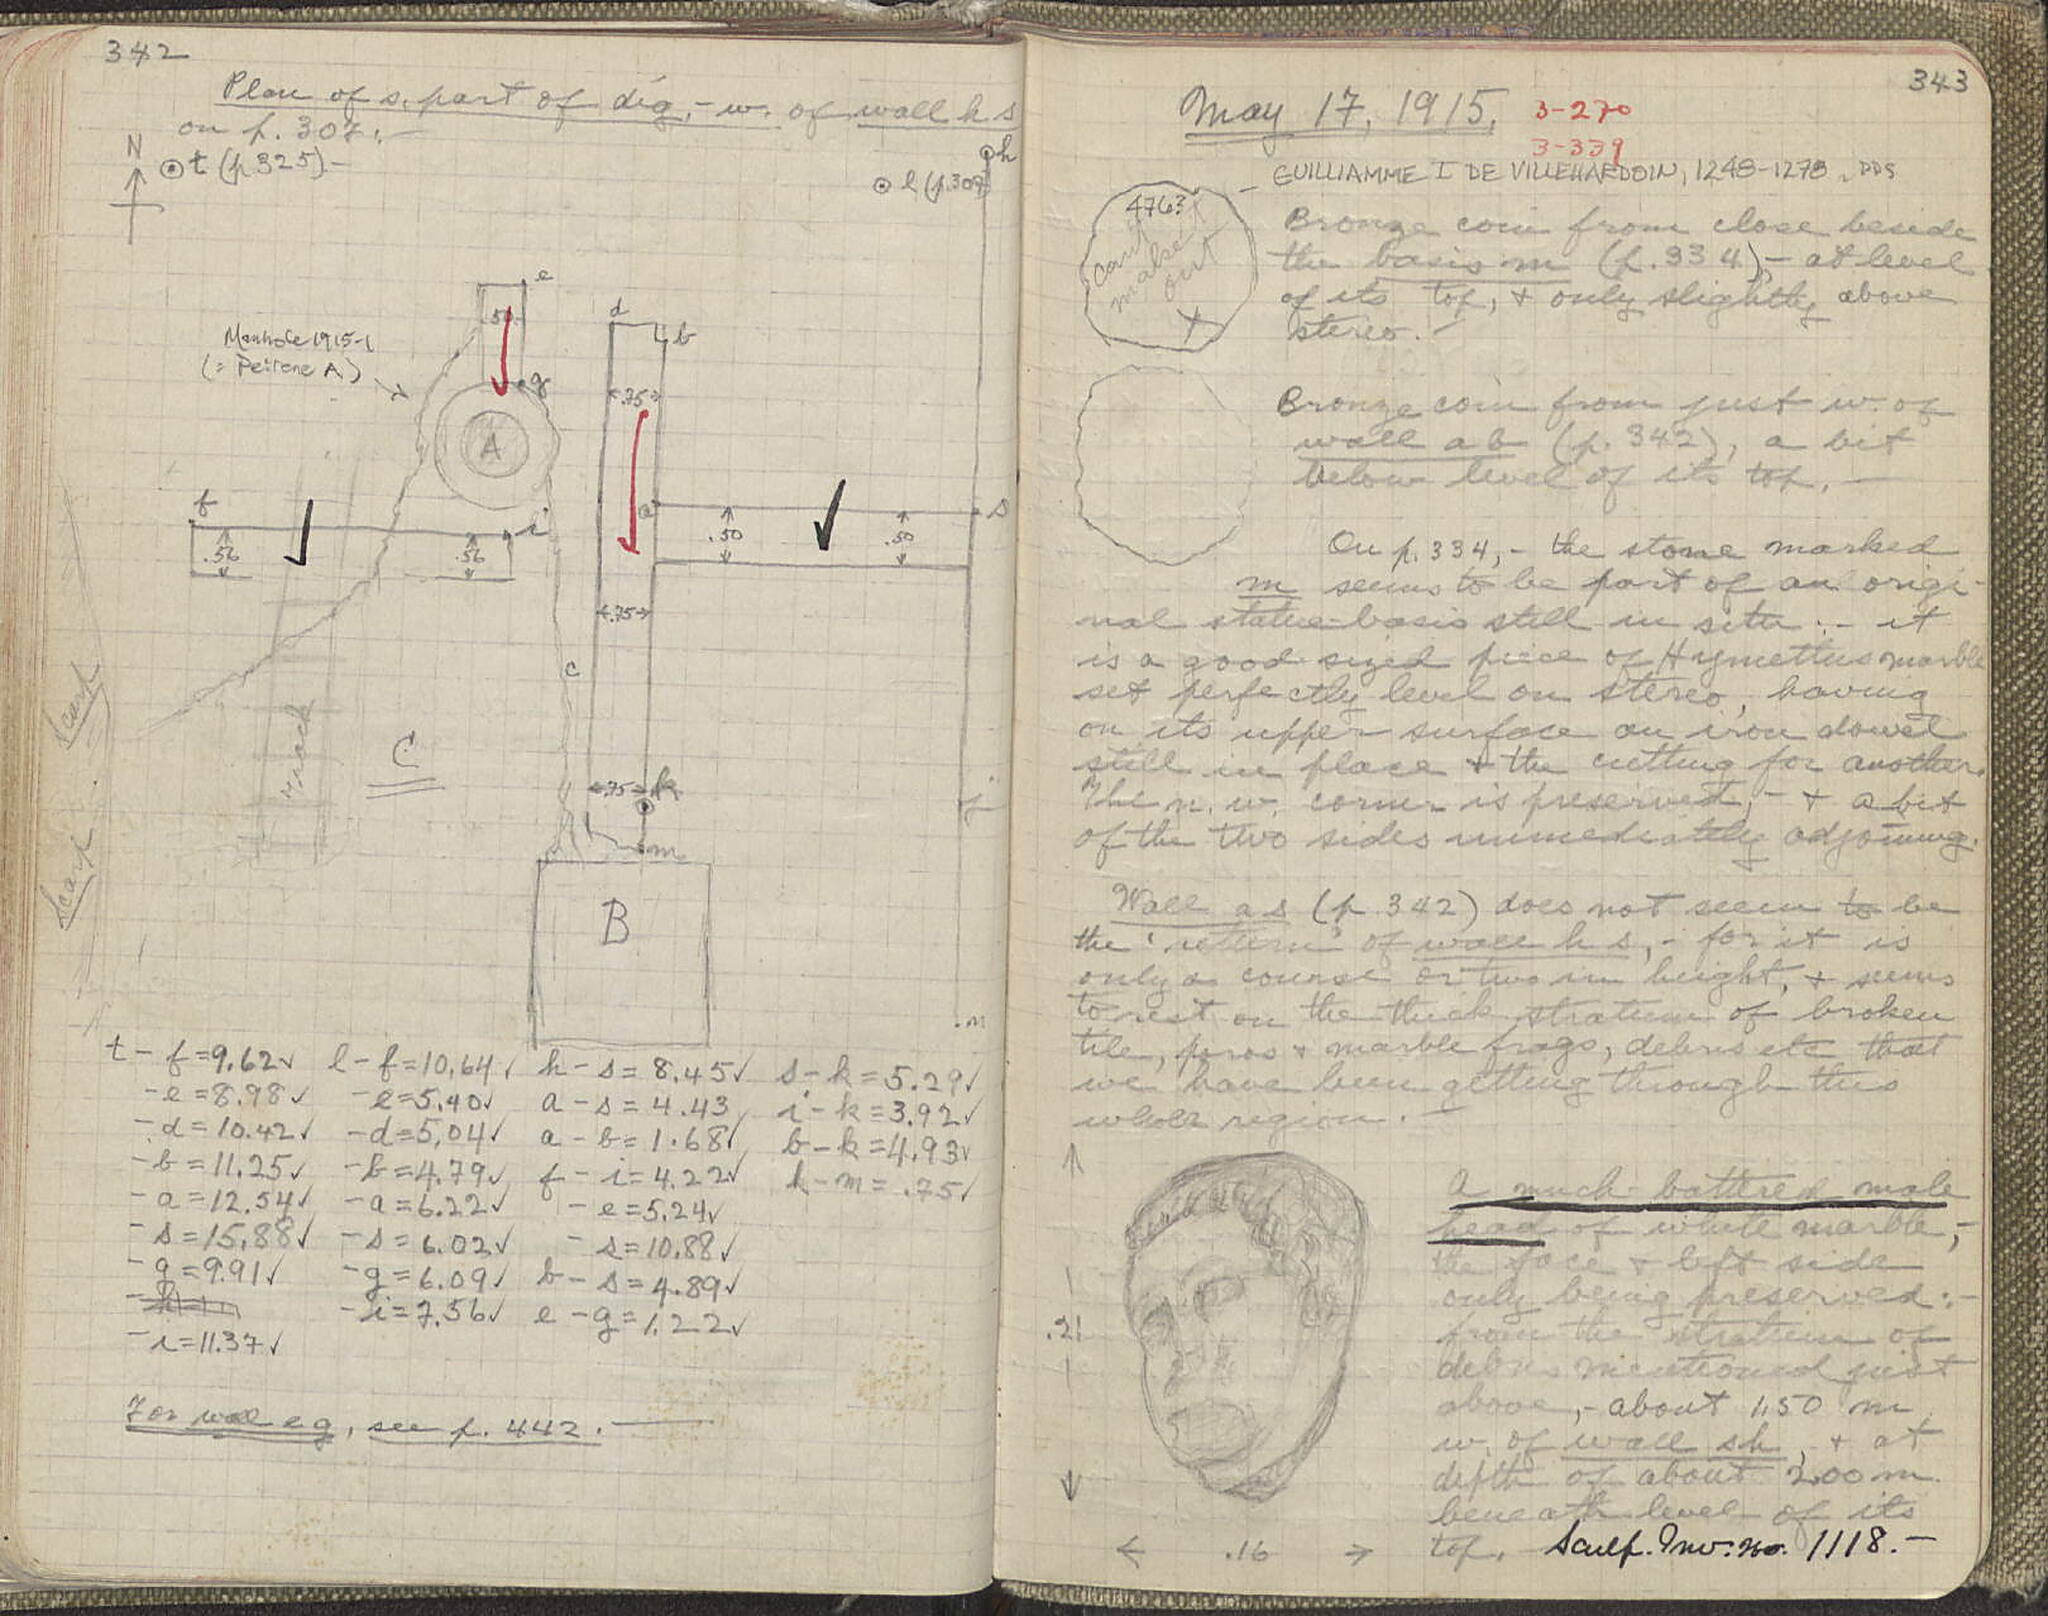 342
Plan of s. part of dig, - w. of wall h s
on p. 307:-
N
t (p. 325).-
h
l (p. 307)
e
.50
d
b
Manhole 1915-1
(= Peirene A)
g
.75
A
f
a
s
i
.56
.56
.50
.50
.75
c
Scarp
track
C
.75
k
j
m
Scarp
B
m
t - f = 9.62✓ l - f = 10.64✓ h - s = 8.45✓ s - k = 5.29✓
- e = 8.98✓ - e = 5.40✓ a - s = 4.43 i - k = 3.92✓
- d = 10.42✓ - d = 5.04✓ a - b = 1.68✓ b - k = 4.93✓
- b = 11.25✓ - b = 4.79✓ f - i = 4.22✓ k - m = .75✓
- a = 12.54✓ - a = 6.22✓ - e = 5.24✓
- s = 15.88✓ - s = 6.02✓ - s = 10.88✓
- g = 9.91✓ - g = 6.09✓ b - s = 4.89✓
- i = 7.56✓ e - g = 1.22✓
- i = 11.37✓
For wall e g, see p. 442.
343
May 17, 1915.
3-270
3-339
GUILLIAMME I DE VILLEHARDOIN, 1248-1278. DDS
4763
can't
make it
out
X
Bronze coin from close beside
the basis m (p. 334), - at level
of its top, & only slightly above
stereo. -
Bronze coin from just w. of
wall a b (p. 342), a bit
below level of its top. -
On p. 334, - the stone marked
m seems to be part of an origi-
nal statue-basis still in situ:- it
is a good-sized piece of Hymettus marble
set perfectly level on stereo, having
on its upper surface an iron dowel
still in place & the cutting for another.
The n.w. corner is preserved, - & a bit
of the two sides immediately adjoining.
Wall a s (p. 342) does not seem to be
the 'return' of wall h s, - for it is
only a course or two in height, & seems
to rest on the thick stratum of broken
tile, poros & marble frags, debris etc that
we have been getting through this
whole region. -
A much-battered male
head of white marble, -
the face & left side
only being preserved:-
from the stratum of
debris mentioned just
above, - about 1.50 m
w. of wall s h, & at
depth of about 2.00 m.
beneath level of its
top. Sculp. Inv. no. 1118. -
.21
.16